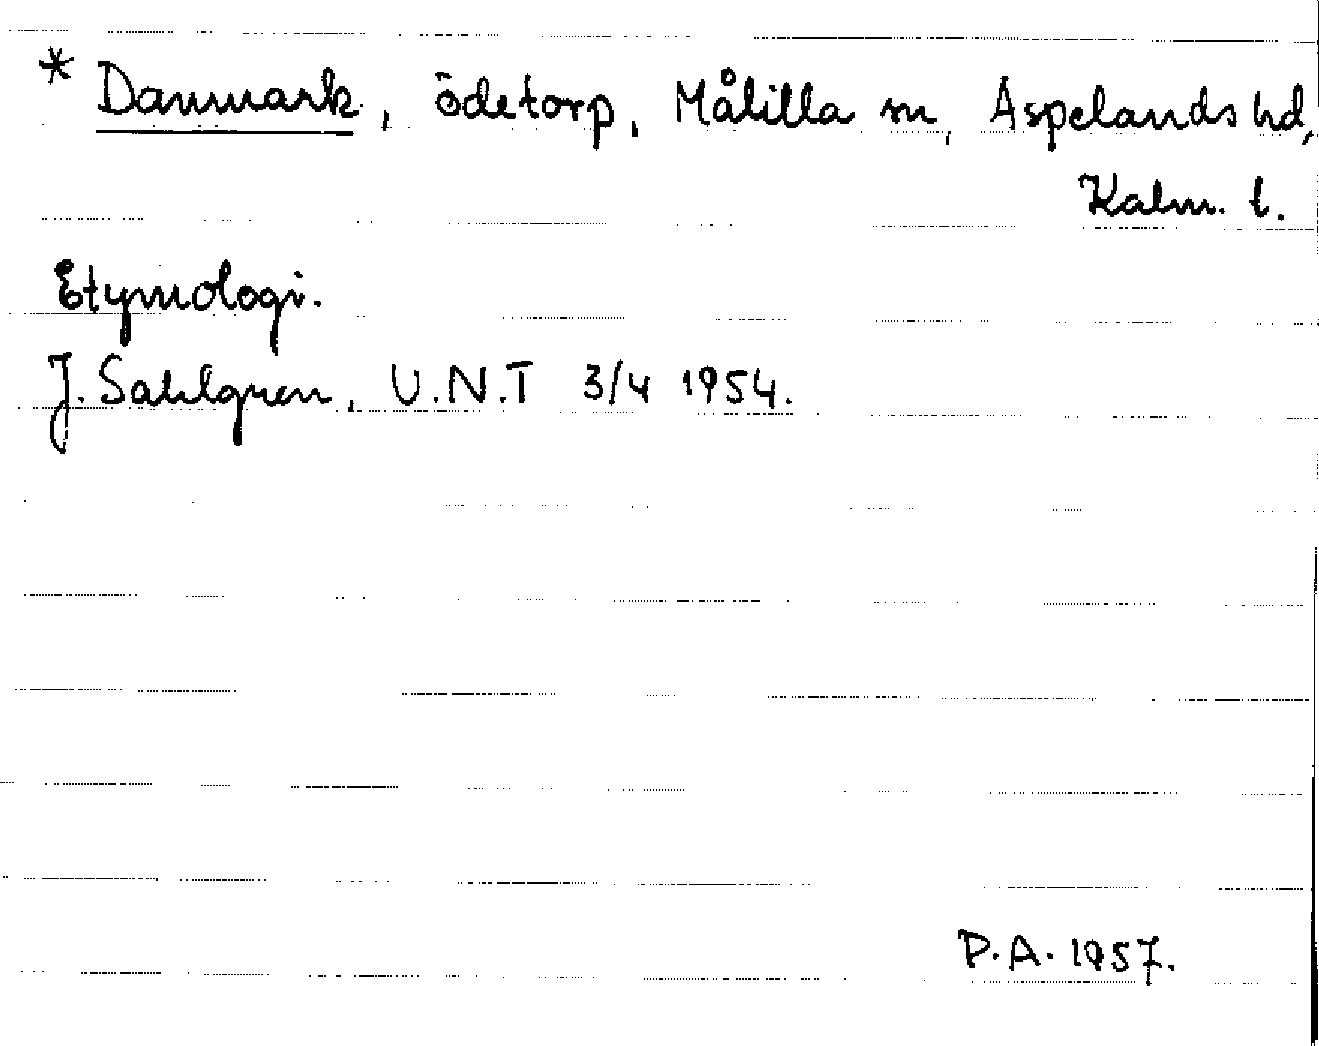 * Danmark, ödetorp, Målilla sn, Aspelands hd,
Kalm. l.
Etymologi.
J. Sahlgren, U.N.T 3/4 1954.
P.A. 1957.